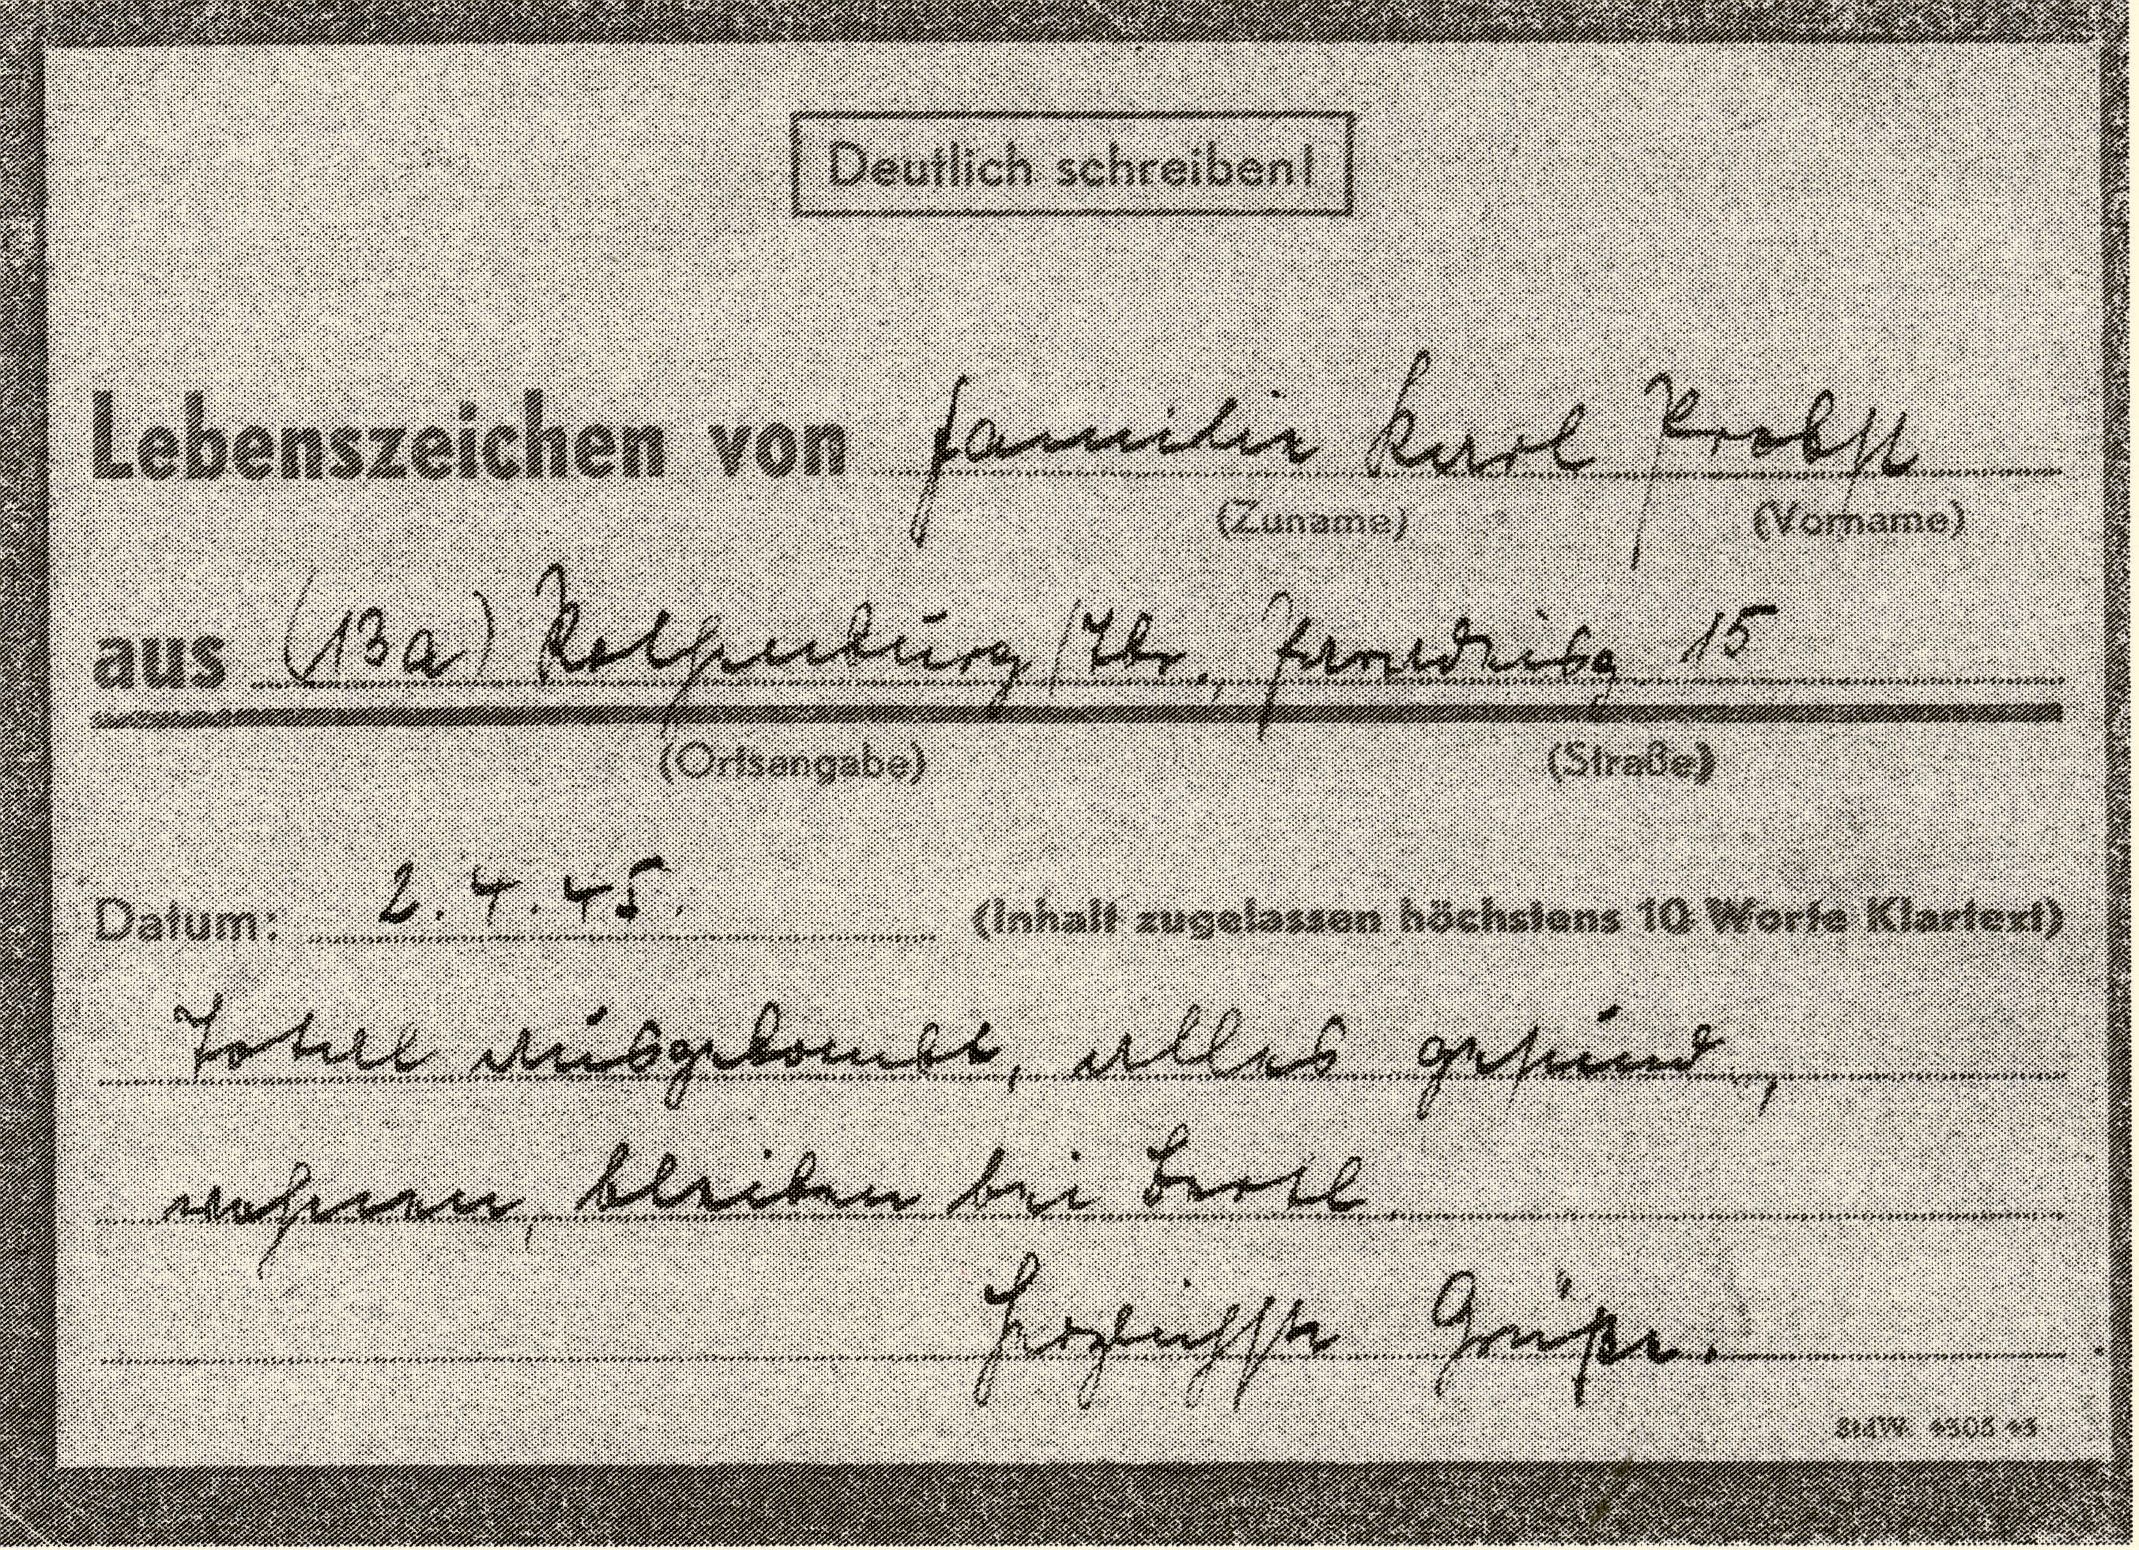 Deutlich schreiben!
Lebenszeichen von Familie Karl Probst
(Zuname) (Vorname)
aus (13a) Rothenburg/Tbr., 15
(Ortsangabe) (Straße)
Datum: 2.4.45. (Inhalt zugelassen höchstens 10 Worte Klartext)
Totall ausgebombt, alles gesund,
wohnen, bleiben bei Bertl
Herzlichste Grüße.